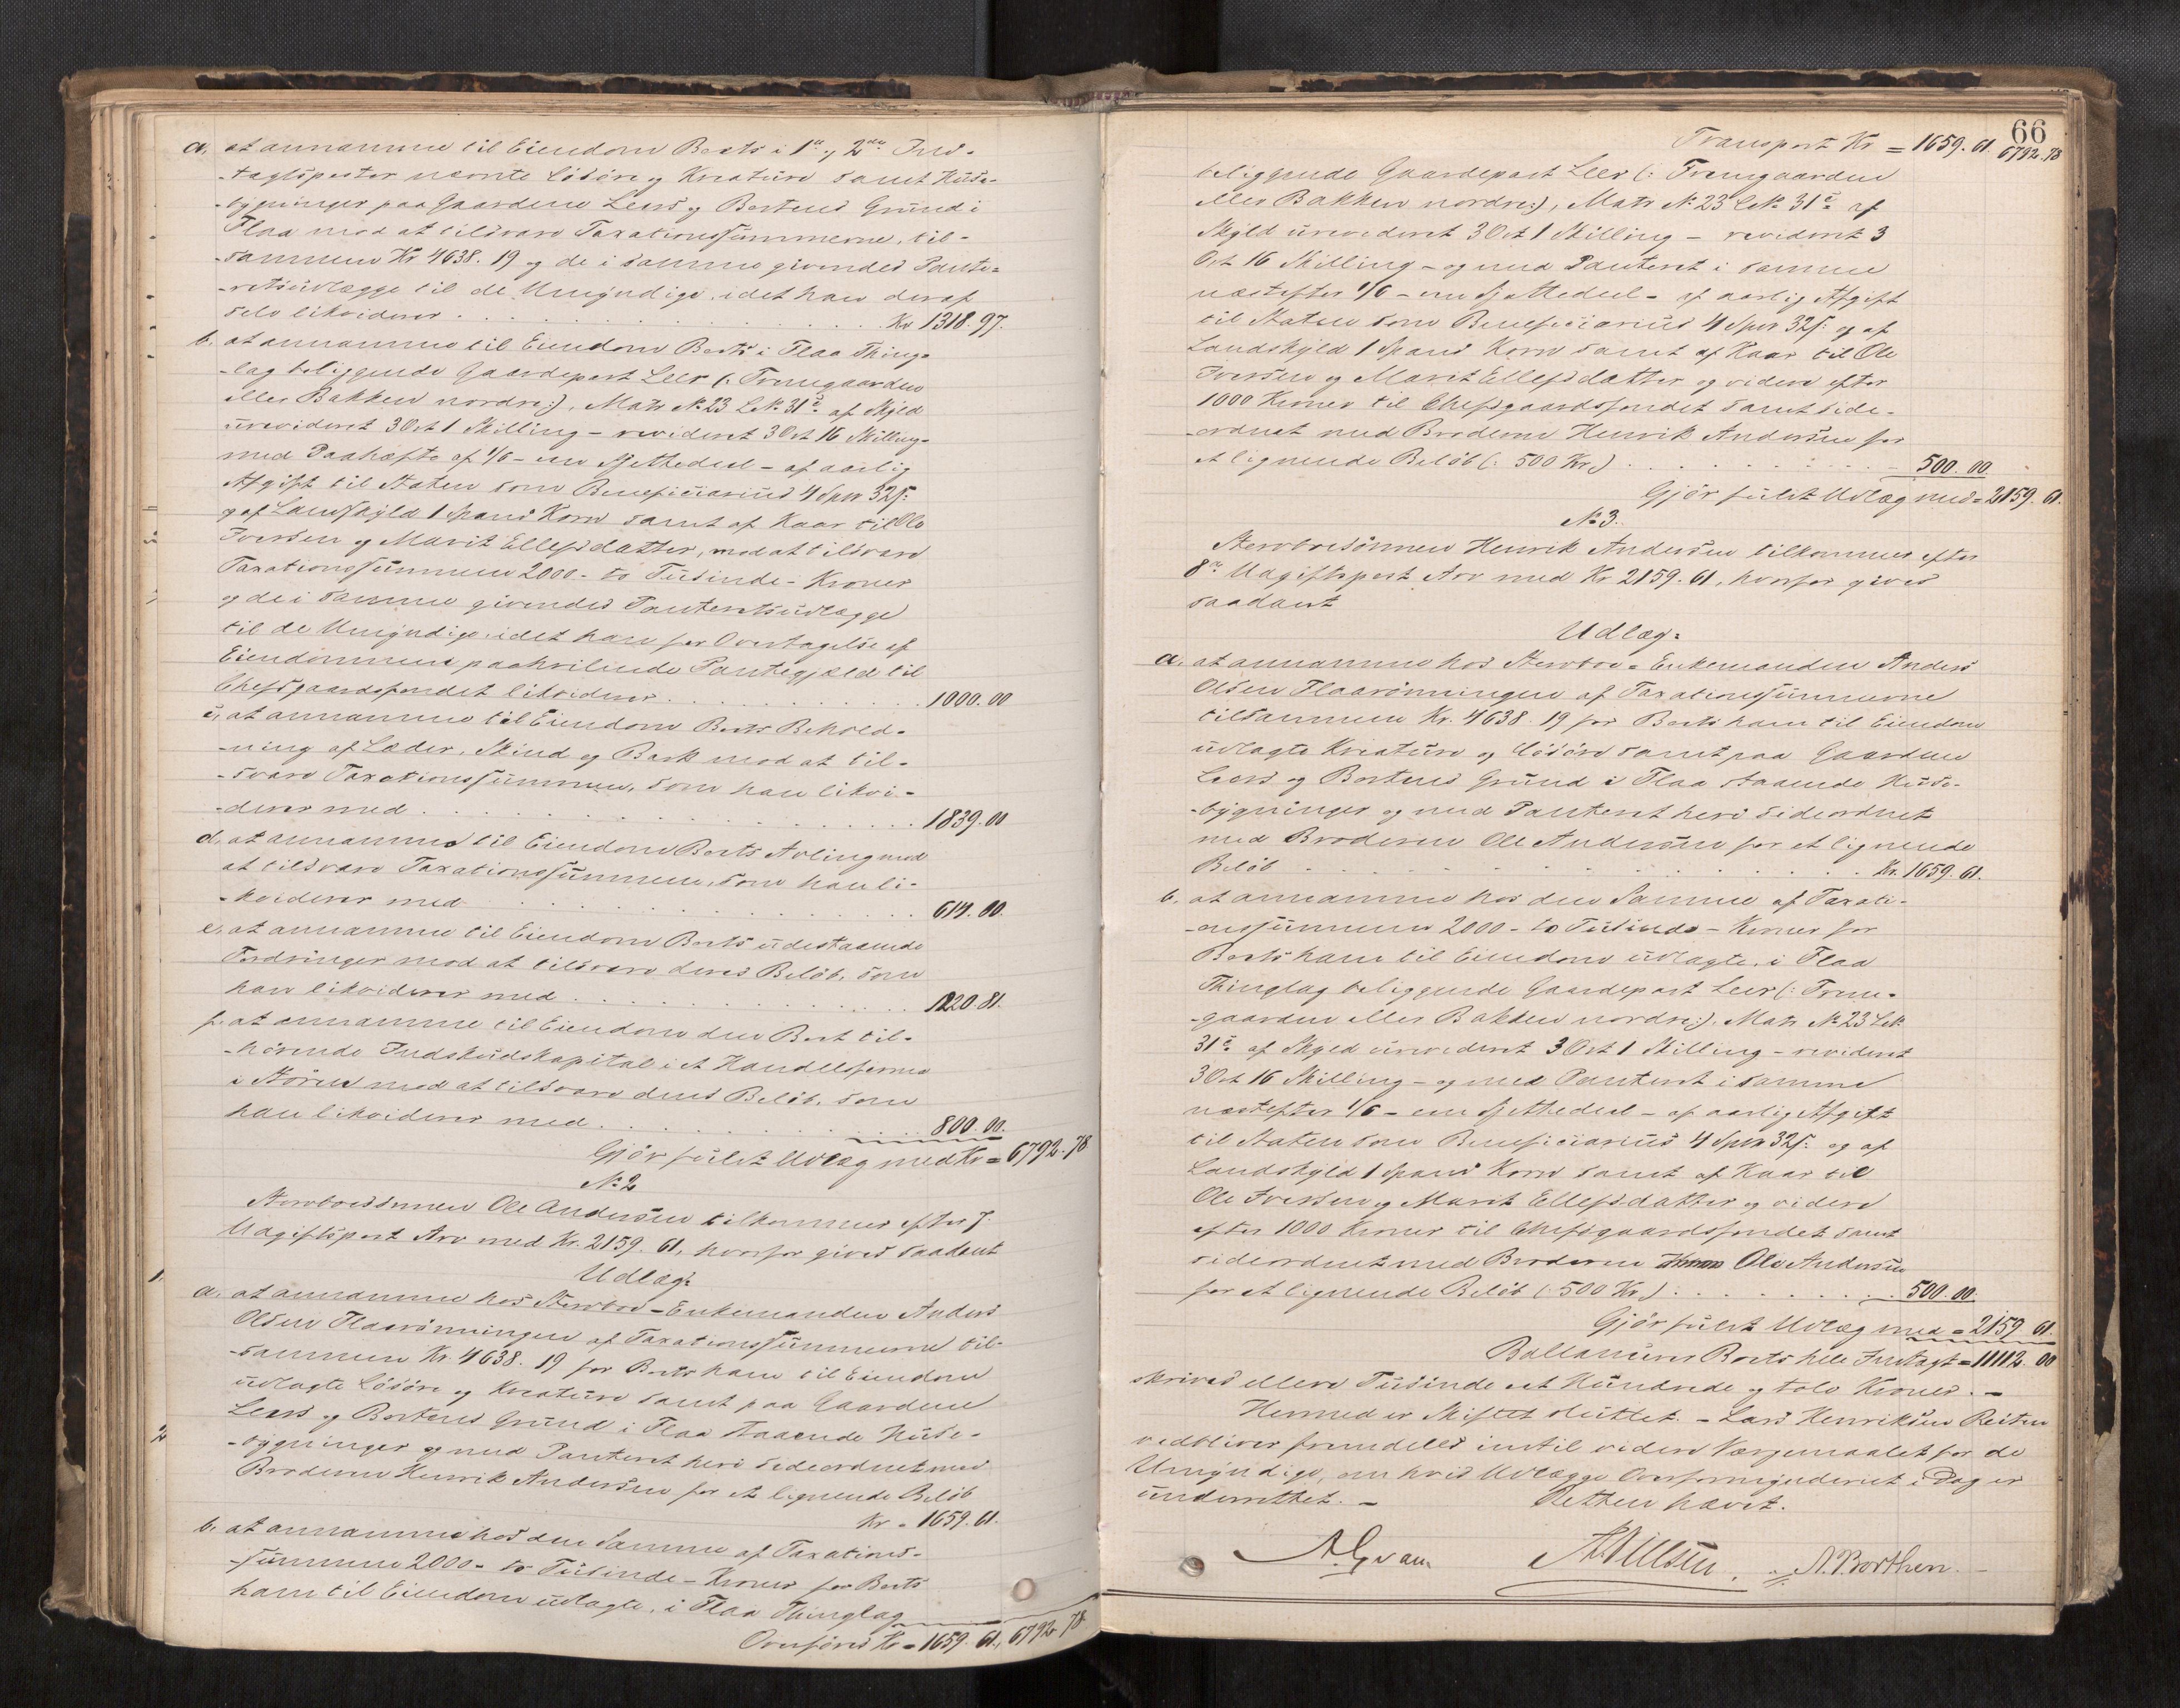 a, at annamme til Eiendom Boets i 1ste og 2den Ind-
-tagtsposter nævnte Løsøre og Kreature samt Huse-
-bygninger paa Gaardene Leers og Bortens Grund i
Flaa mod at tilsvare Taxationssummerne, til-
-sammen Kr 4638. 19 og de i samme givendes Pante-
-retsudlægge til de Umyndige, idet han deraf
selv likviderer . . . Kr 1318. 97.
b. at annamme til Eiendom Boets i Flaa Thing-
-lag beliggende Gaardepart Leer (: Fremgaarden
eller Bakken nordre:), Matr No 23 LNo 31c af Skyld
urevideret 3 Ort 1 Skilling - revideret 3 Ort 16 Skilling-
med Paahæfte af 1/6 - en Sjettedeel - af aarlig
Afgift til Staten som Beneficiarius 4 Spd 32 s:
og af Landskyld 1 Spand Korn samt af Kaar til Ole
Iversen og Marit Ellefsdatter, mod at tilsvare
Taxationssummen 2000 - to Tusinde - Kroner
og de i samme givendes Panteretsudlægge
til de Umyndige, idet han for Overtagelse af
Eiendommens paahvilende Pantegjæld til
Chefsgaardsfondet likviderer . . . 1000.00
c, at annamme til Eiendom Boets Behold-
-ning af Læder, Skind og Bark mod at til-
-svare Taxationssummen, som han likvi-
-derer med . . . 1839.00
d, at annamme til Eiendom Boets Avling mod
at tilsvare Taxationssummen, som han li-
-kviderer med . . . 614. 00.
e, at annamme til Eiendom Boets udestaaende
Fordringer mod at tilsvare deres Beløb, som
han likviderer med . . . 1220.81.
f. at annamme til Eiendom den Boet til-
-hørende Indskudskapital i et Handelsfirma
i Støren mod at tilsvare dens Beløb, som
han likviderer med . . . 800.00.
Gjør fuldt Udlæg med Kr = 6792.78
No 2
Stervboesønnen Ole Andersen tilkommer efter 7.
Udgiftspost Arv med Kr. 2159. 61, hvorfor gives saadant
Udlæg:
1.
a. at annamme hos Stervboe-Enkemanden Anders
Olsen Flaarønningen af Taxationssummerne til-
-sammen Kr. 4638. 19 for Boets ham til Eiendom
udlagte Løsøre og Kreature samt paa Gaardene
Leers og Bortens Grund i Flaa staaende Huse-
2
-bygninger og med Panteret heri sideordnet med
Broderen Henrik Andersen for et lignende Beløb
Kr = 1659. 61.
b. at annamme hos den Samme af Taxations-
-summen 2000 - to Tusinde - Kroner for Boets
ham til Eiendom udlagte, i Flaa Thinglag
Overføres Kr = 1659. 61, 6792 78
66
Transport Kr = 1659. 61. 6792.78
beliggende Gaardepart Leer (: Fremgaarden
eller Bakken nordre:), Matr No 23 LNo 31c af
Skyld urevideret 3 Ort 1 Skilling - revideret 3
Ort 16 Skilling - og med Panteret i samme
næstefter 1/6 - en Sjettedeel - af aarlig Afgift
til Staten som Beneficiarius 4 Spd 32 s: og af
Landskyld 1 Spand Korn samt af Kaar til Ole
Iversen og Marit Ellefsdatter og videre efter
1000 Kroner til Chefsgaardsfondet samt side-
-ordnet med Broderen Henrik Andersen for
et lignende Beløb (: 500 Kr.) . . . 500. 00.
Gjør fuldt Udlæg med = 2159. 61.
No 3.
Stervboesønnen Henrik Andersen tilkommer efter
8de Udgiftspost Arv med Kr 2159. 61, hvorfor gives
saadant
Udlæg:
a. at annamme hos Stervboe-Enkemanden Anders
Olsen Flaarønningen af Taxationssummerne
tilsammen Kr. 4638. 19 for Boets ham til Eiendom
udlagte Kreature og Løsøre samt paa Gaardene
Leers og Bortens Grund i Flaa staaende Huse-
-bygninger og med Panteret heri sideordnet
med Broderen Ole Andersen for et lignende
Beløb . . . Kr. 1659. 61.
b. at annamme hos den Samme af Taxati-
-onssummen 2000 - to Tusinde - Kroner for
Boets ham til Eiendom udlagte, i Flaa
Thinglag beliggende Gaardepart Leer (: Frem-
-gaarden eller Bakken nordre:), Matr No 23 LNo
31c af Skyld urevideret 3 Ort 1 Skilling - revideret
3 Ort 16 Skilling - og med Panteret i samme
næstefter 1/6 - en Sjettedeel - af aarlig Afgift
til Staten som Beneficiarius 4 Spd 32 s: og af
Landskyld 1 Spand Korn samt af Kaar til
Ole Iversen og Marit Ellefsdatter og videre
efter 1000 Kroner til Chefsgaardsfondet samt
sideordnet med Broderen Ole Andersen
for et lignende Beløb (: 500 Kr.) : . . . 500. 00.
Gjør fuldt Udlæg med = 2159 61.
Ballancerer Boets hele Indtægt = 11112. 00
skrives elleve Tusinde et Hundrede og tolv Kroner. -
Hermed er Skiftet sluttet. - Lars Henriksen Reitan
vedbliver fremdeles indtil videre Værgemaalet for de
Umyndige, om hvis Udlægge Overformynderiet i Dag er
underrettet. - Retten hævet.
A. Borthen.